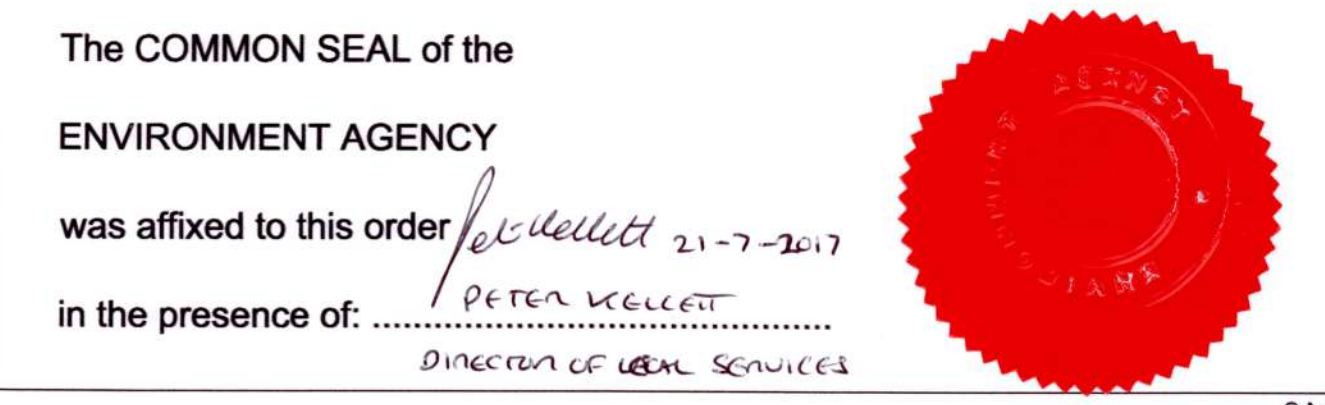 The COMMON SEAL of the
ENVIRONMENT AGENCY
was affixed to this order Peter Kellett 21-7-2017
in the presence of: PETER KELLETT
DIRECTOR OF LEGAL SERVICES
ENVIRONMENT AGENCY